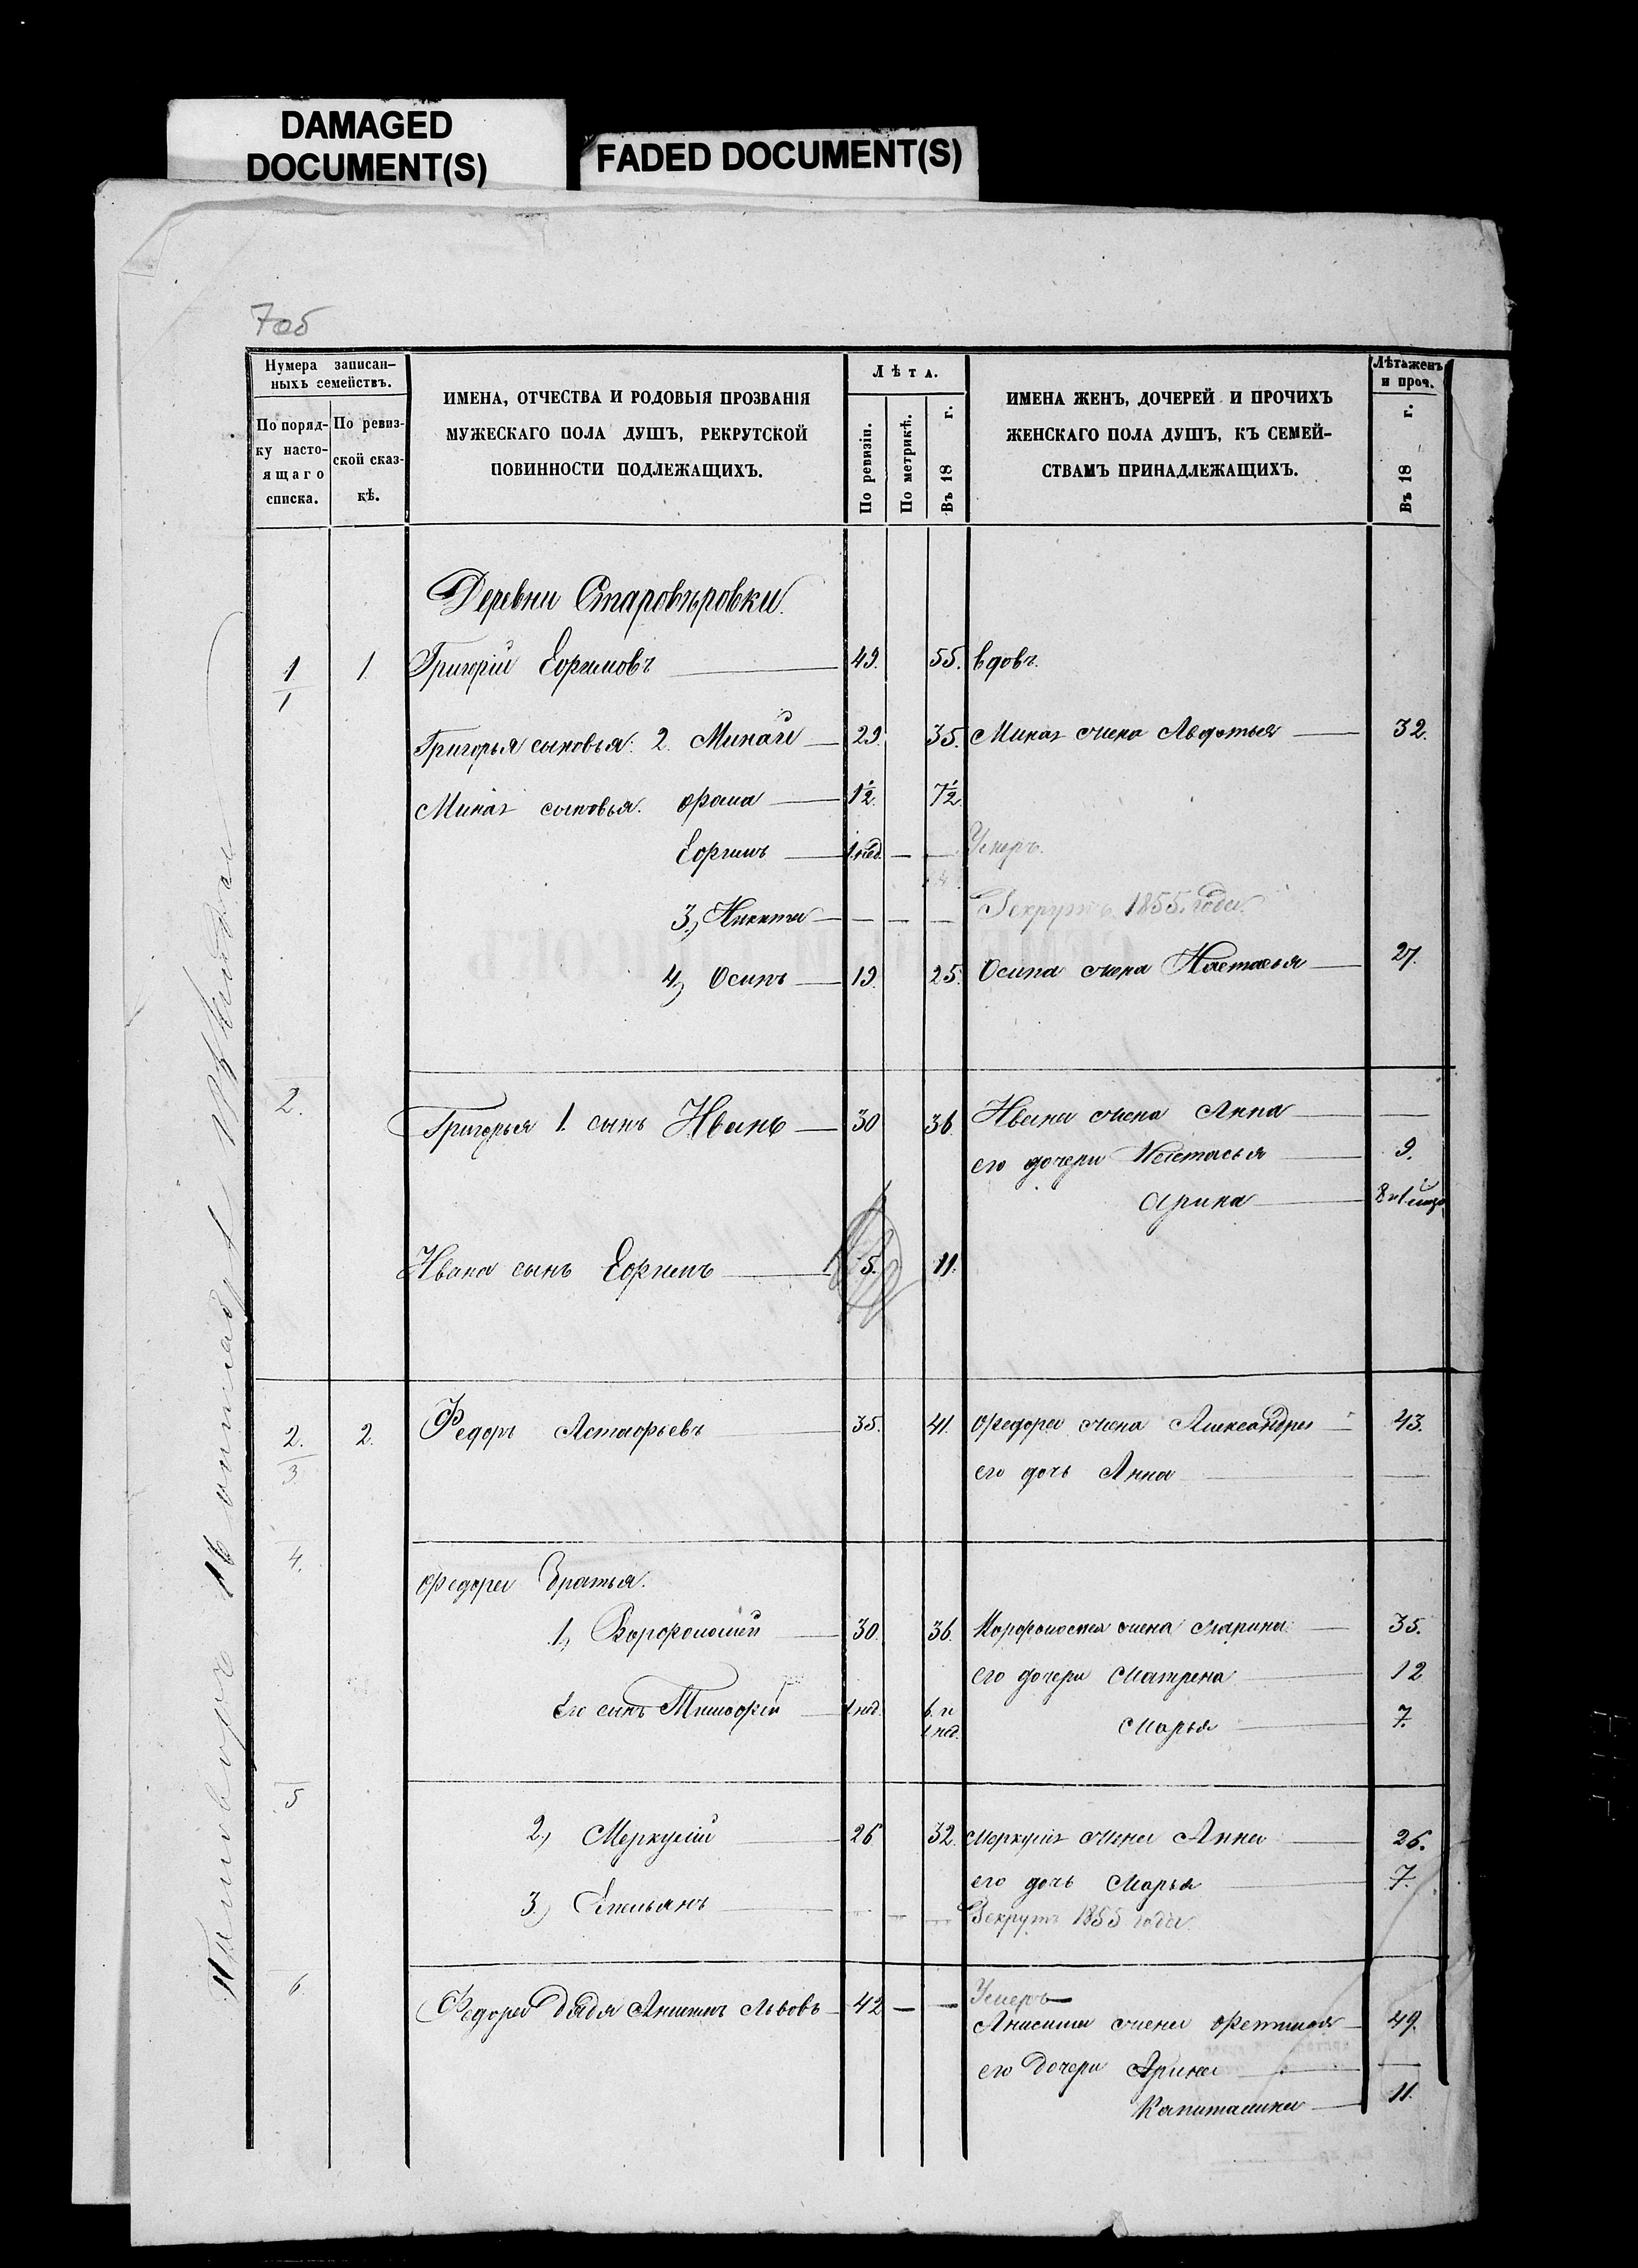 DAMAGED
DOCUMENT(S)
FADED DOCUMENT(S)
7об
Нумера записан-
ныхъ семействъ.
По поряд-
ку насто-
ящаго
списка.
По ревиз-
ской сказ-
кѣ.
ИМЕНА, ОТЧЕСТВА И РОДОВЫЯ ПРОЗВАНІЯ
МУЖЕСКАГО ПОЛА ДУШЪ, РЕКРУТСКОЙ
ПОВИННОСТИ ПОДЛЕЖАЩИХЪ.
Лѣта.
По ревизіи.
По метрикѣ.
Въ 18 г.
ИМЕНА ЖЕНЪ, ДОЧЕРЕЙ И ПРОЧИХЪ
ЖЕНСКАГО ПОЛА ДУШЪ, КЪ СЕМЕЙ-
СТВАМЪ ПРИНАДЛЕЖАЩИХЪ.
Лѣта женъ
и проч.
Въ 18 г.
Деревни Старовѣровки.
1 1. Григорій Ефимовъ 49. 55. вдовъ.
1
Григорья сыновья: 2. Минай 29. 35. Миная жена Авдотья 32.
Миная сыновья. Фома 1½. 7½
Ефимъ 1 нед. — — Умеръ.
3, Никита — — — Рекрутъ 1855. года.
4, Осипъ 19. 25. Осипа жена Настасья 27.
2. Григорья 1. сынъ Иванъ 30 36. Ивана жена Анна —
его дочери Настасья 9.
Арина
Ивана сынъ Ефимъ 5. 11.
2. 2. Федоръ Астафьевъ 35. 41. Федора жена Александра 43.
3 его дочь Анна —
4. Федора братья.
1, 30. 36. жена Марина 35.
его дочери Матрена 12
Его сынъ Тимофей 1 нед. 6. и
1 нед.
Марья 7.
5 2, Меркулій 26 32. Меркулія жена Анна 26.
его дочь Марья 7.
3, Емельянъ — — — Рекрутъ 1855 года.
6. Федора дядя Анисимъ Львовъ 42 — — Умеръ
Анисима жена 49.
его дочери Арина —
Капиталина 11.
16